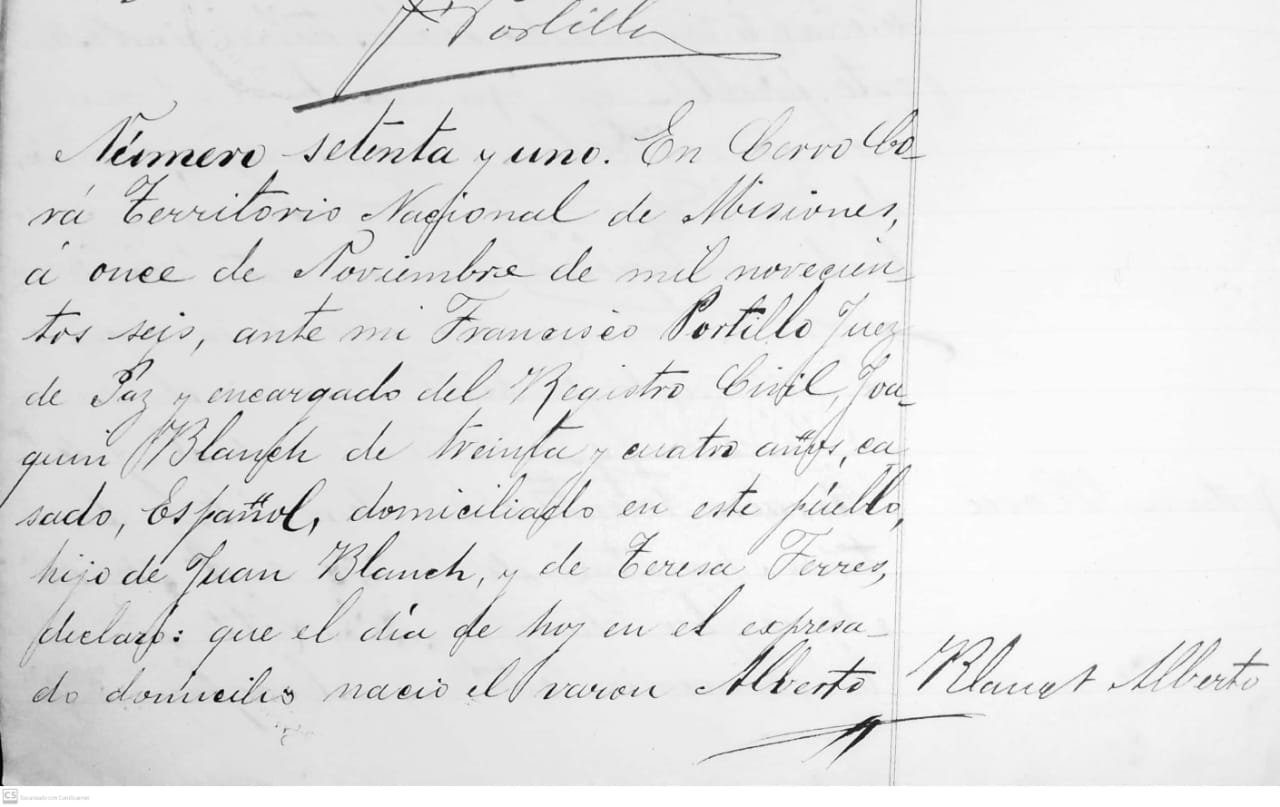 F. Portillo
Número setenta y uno. En Cerro Co-
rá Territorio Nacional de Misiones,
á once de Noviembre de mil novecien-
tos seis, ante mi Francisco Portillo Juez
de Paz y encargado del Registro Civil, Joa-
quin Blanch de treinta y cuatro años, ca
sado, Español, domiciliado en este pueblo,
hijo de Juan Blanch, y de Teresa Ferres,
declaro: que el día de hoy en el expresa-
do domicilio nació el varon Alberto
Blanch Alberto
CS Escaneado con CamScanner